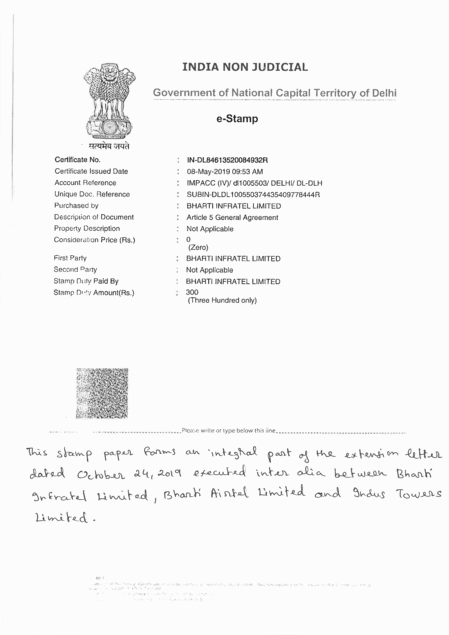 INDIA NON JUDICIAL
Government of National Capital Territory of Delhi
e-Stamp
सत्यमेव जयते
Certificate No. : IN-DL84613520084932R
Certificate Issued Date : 08-May-2019 09:53 AM
Account Reference : IMPACC (IV)/ dl1005503/ DELHI/ DL-DLH
Unique Doc. Reference : SUBIN-DLDL100550374435409778444R
Purchased by : BHARTI INFRATEL LIMITED
Description of Document : Article 5 General Agreement
Property Description : Not Applicable
Consideration Price (Rs.) : 0
(Zero)
First Party : BHARTI INFRATEL LIMITED
Second Party : Not Applicable
Stamp Duty Paid By : BHARTI INFRATEL LIMITED
Stamp Duty Amount(Rs.) : 300
(Three Hundred only)
Please write or type below this line
This stamp paper forms an integral part of the extension letter
dated October 24, 2019 executed inter alia between Bharti
Infratel Limited, Bharti Airtel Limited and Indus Towers
Limited.